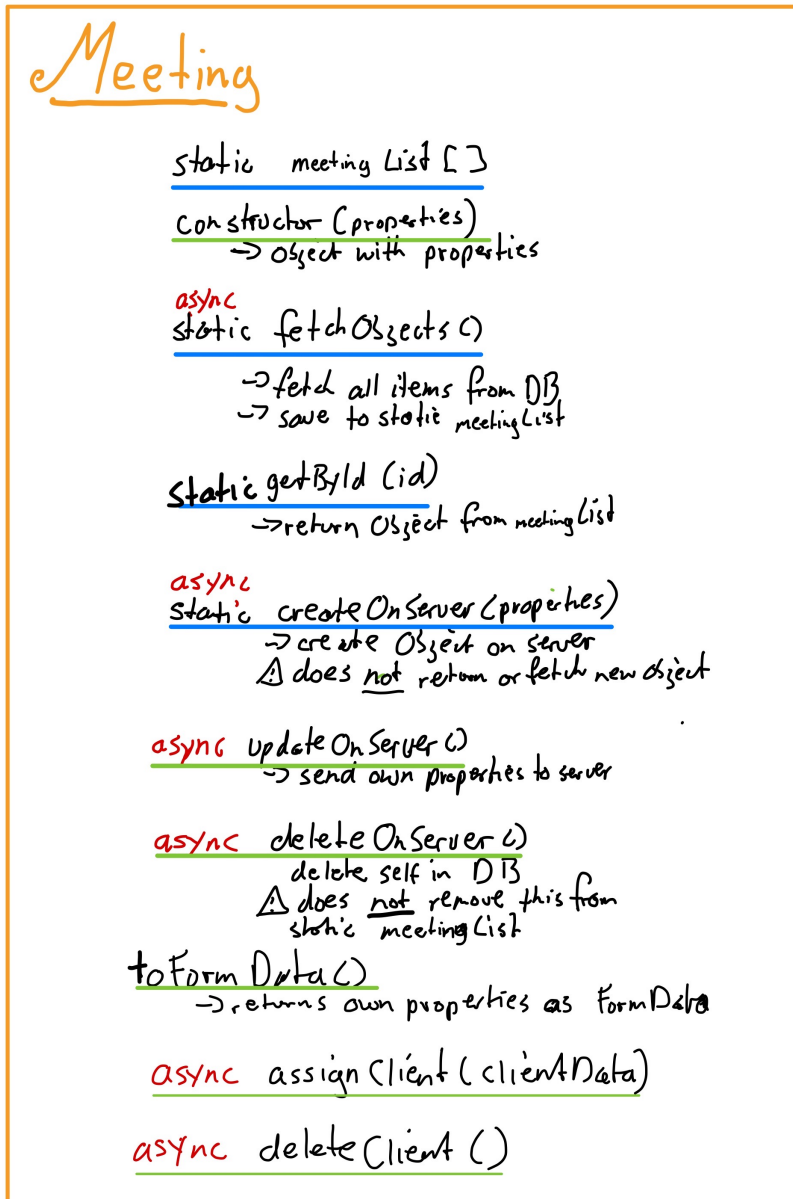 Meeting
static meeting List []
constructor (properties)
-> Object with properties
async
static fetchObjects ()
-> fetch all items from DB
-> save to static meetingList
static getById (id)
-> return Object from meetingList
async
static createOnServer (properties)
-> create Object on server
⚠ does not return or fetch new object
async updateOnServer ()
-> send own properties to server
async deleteOnServer ()
delete self in DB
⚠ does not remove this from
static meetingList
toFormData ()
-> returns own properties as FormData
async assignClient (clientData)
async deleteClient ()